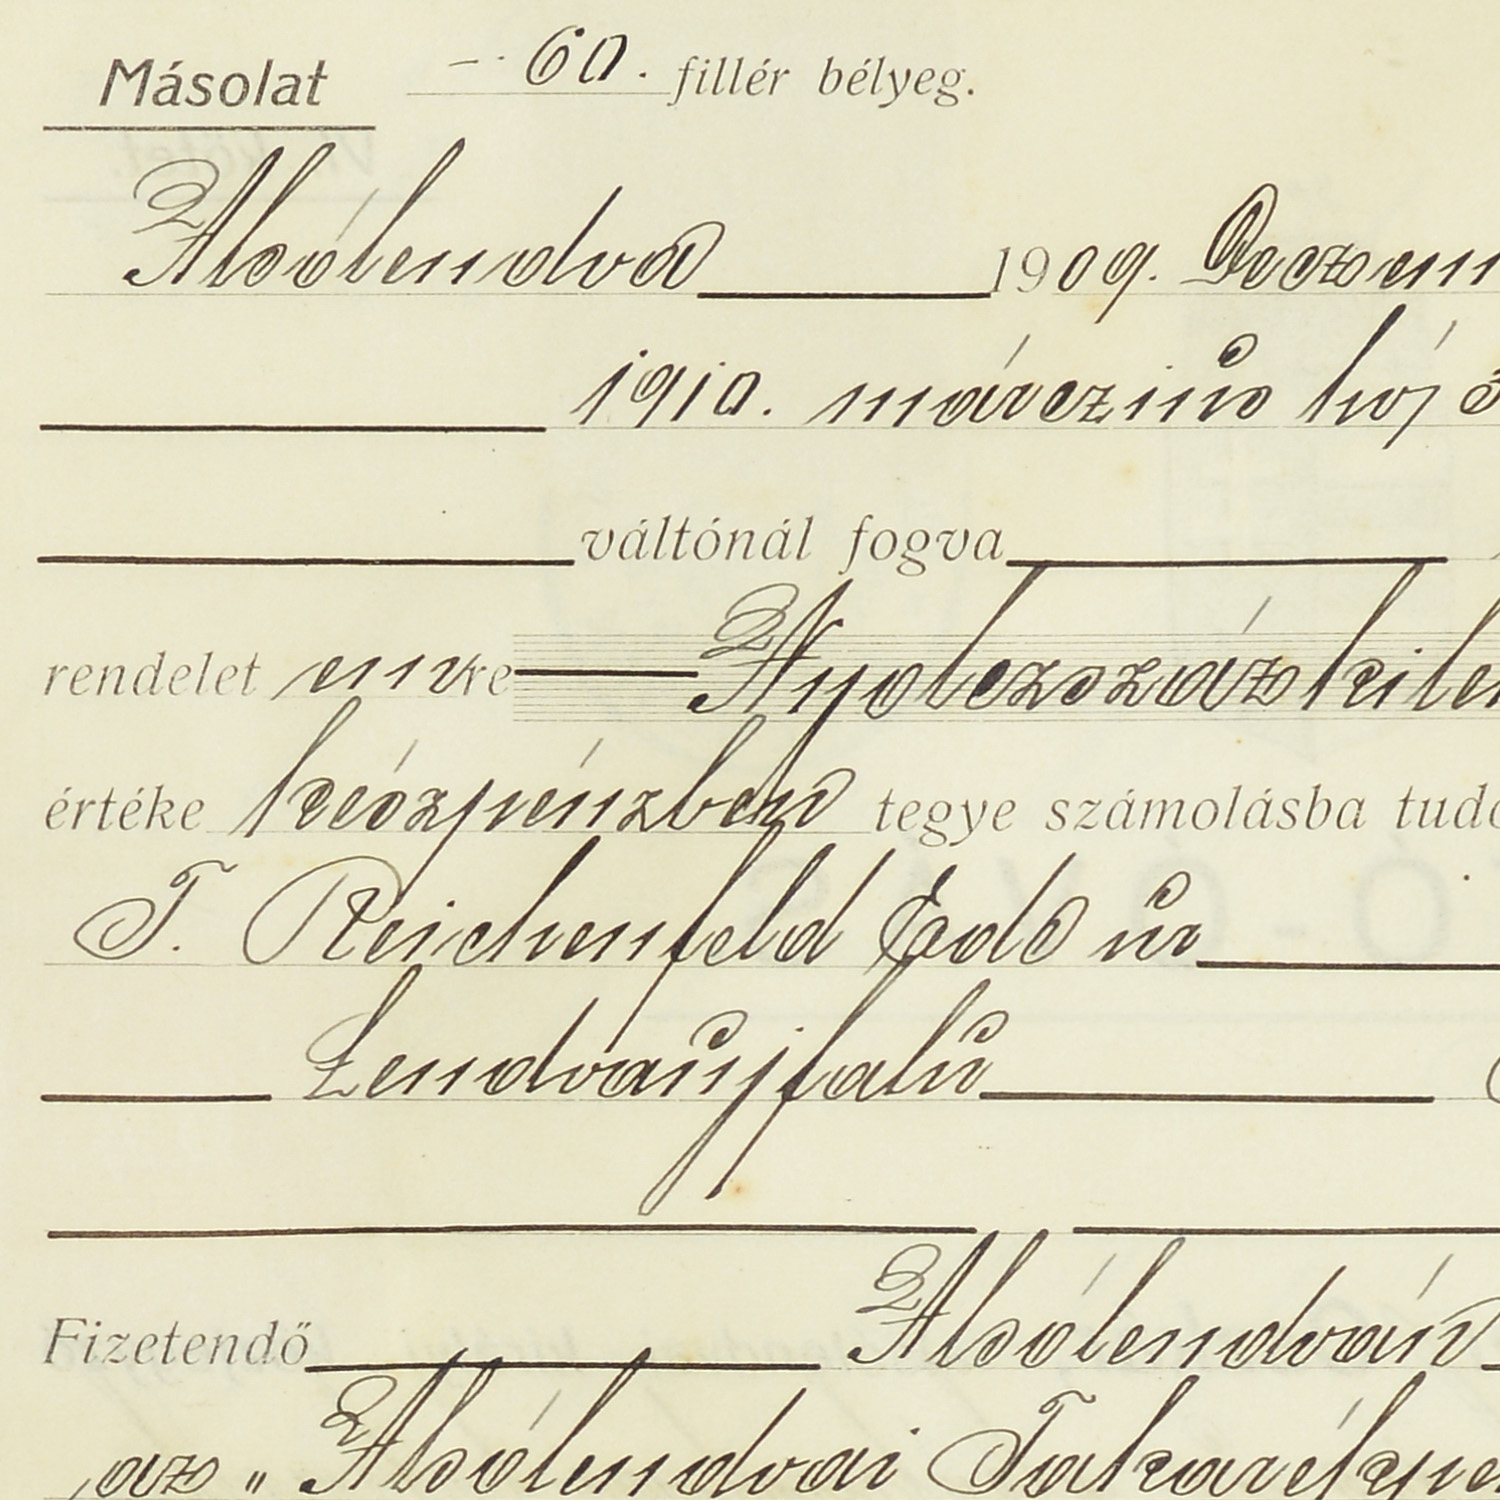 Másolat - 60. fillér bélyeg.
Alsólendva 1909. Deczem
1910. márczius hó
váltónál fogva
rendelet emre Nyolczszázkilen
értéke készpénzben tegye számolásba tudó
T. Reichenfeld Ede úr
Lendvaujfalu
Fizetendő Alsólendván
az "Alsólendvai Takarékpé